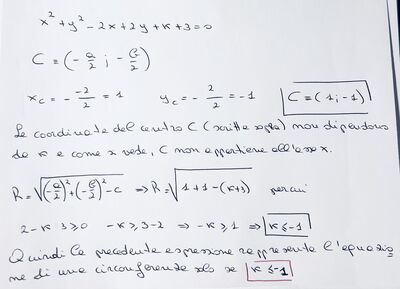 x² + y² - 2x + 2y + k + 3 = 0
C = (-a/2 ; -b/2)
x_C = - -2/2 = 1 y_C = - 2/2 = -1 C = (1; -1)
Le coordinate del centro C (scritte sopra) non dipendono
da k e come si vede, C non appartiene all'asse x.
R = √((-a/2)² + (-b/2)² - c) ⇒ R = √(1 + 1 - (k+3)) per cui
2 - k - 3 ≥ 0 -k ≥ 3 - 2 ⇒ -k ≥ 1 ⇒ k ≤ -1
Quindi la precedente espressione rappresenta l'equazio
ne di una circonferenza solo se k ≤ -1